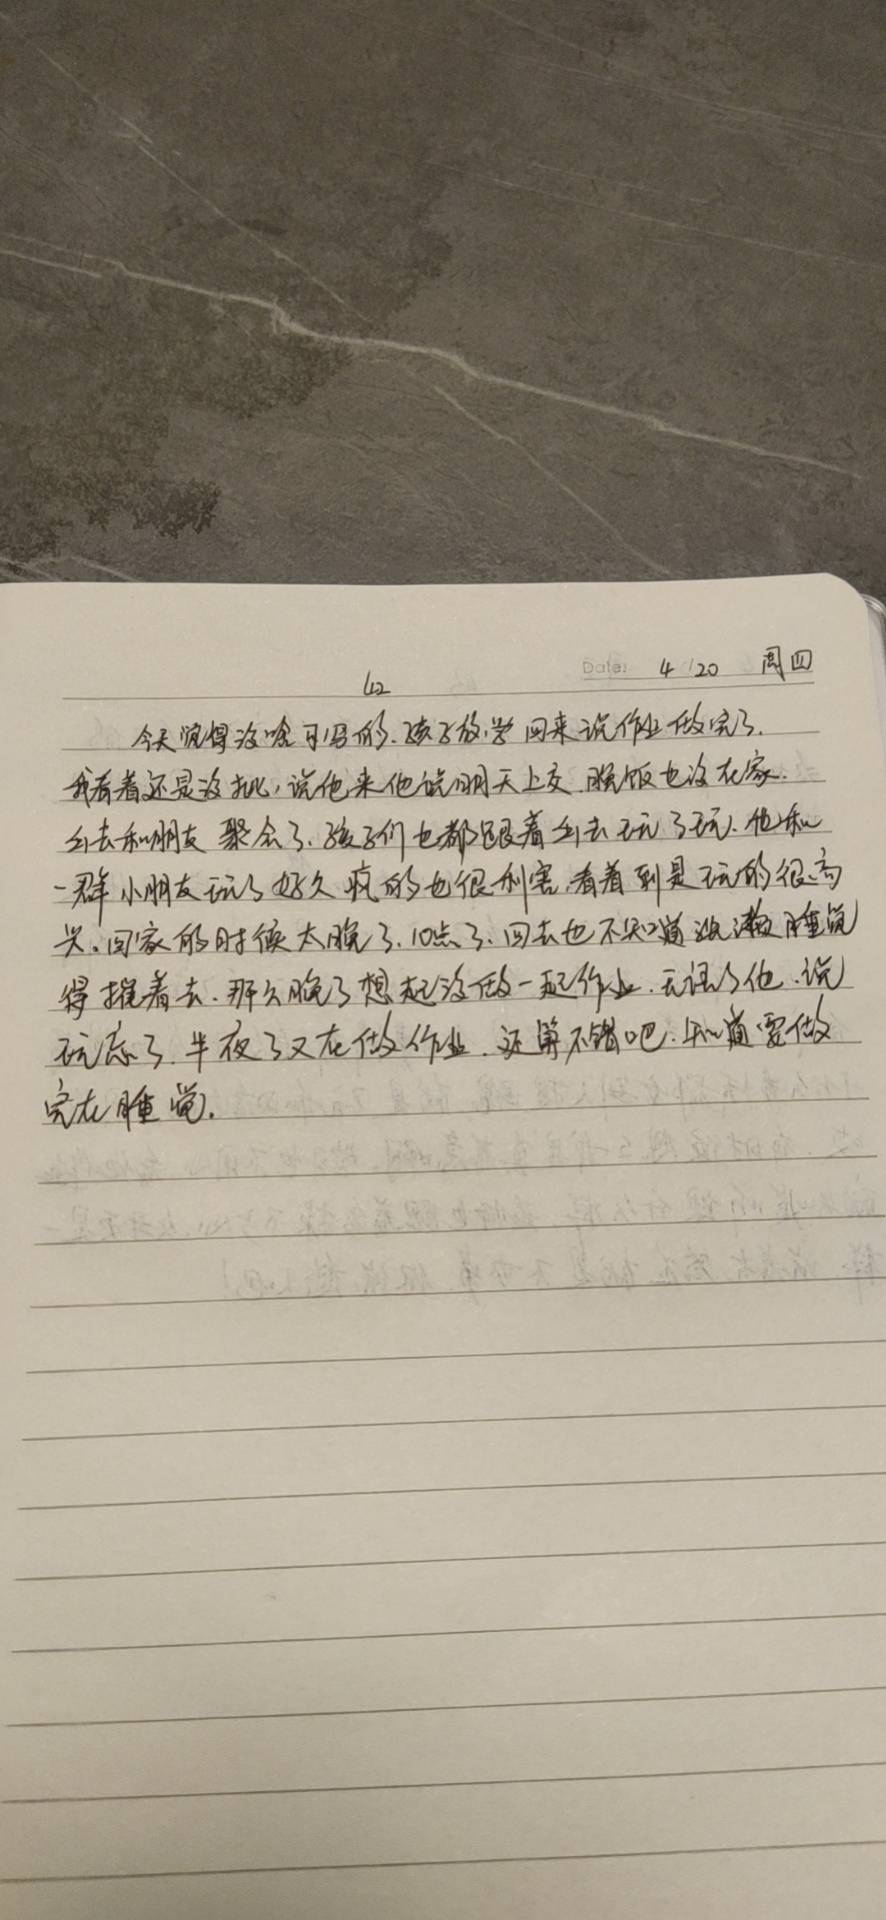 Date: 4/20 周四
42
今天觉得没啥可写的.孩子放学回来说作业做完了.
我看着还是没批,说他来他说明天上交.晚饭也没在家.
出去和朋友聚会了.孩子们也都跟着出去玩了玩.他和
一群小朋友玩了好久疯的也很利害.看着到是玩的很高
兴.回家的时候太晚了.10点了.回去也不知道洗漱睡觉
得摧着去.那么晚了想起没做一起作业.无语了他.说
玩忘了.半夜了又在做作业.还算不错吧.知道要做
完在睡觉.